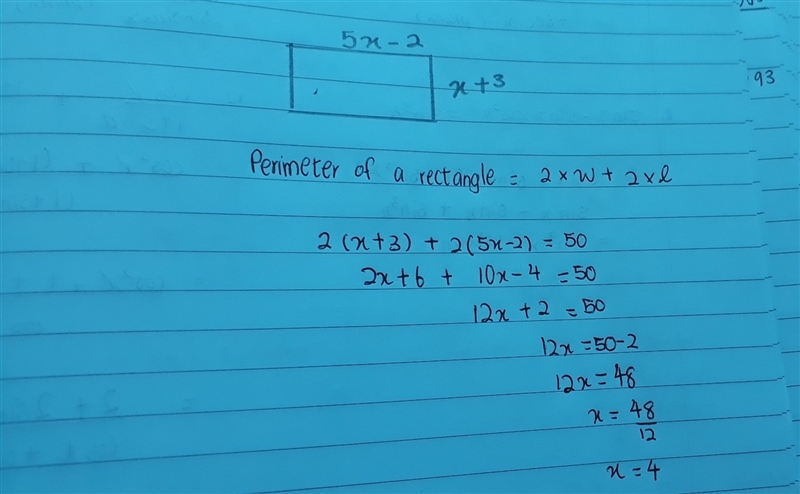 5x - 2
x + 3
93
Perimeter of a rectangle = 2 × w + 2 × l
2 (x + 3) + 2(5x - 2) = 50
2x + 6 + 10x - 4 = 50
12x + 2 = 50
12x = 50 - 2
12x = 48
x = 48/12
x = 4